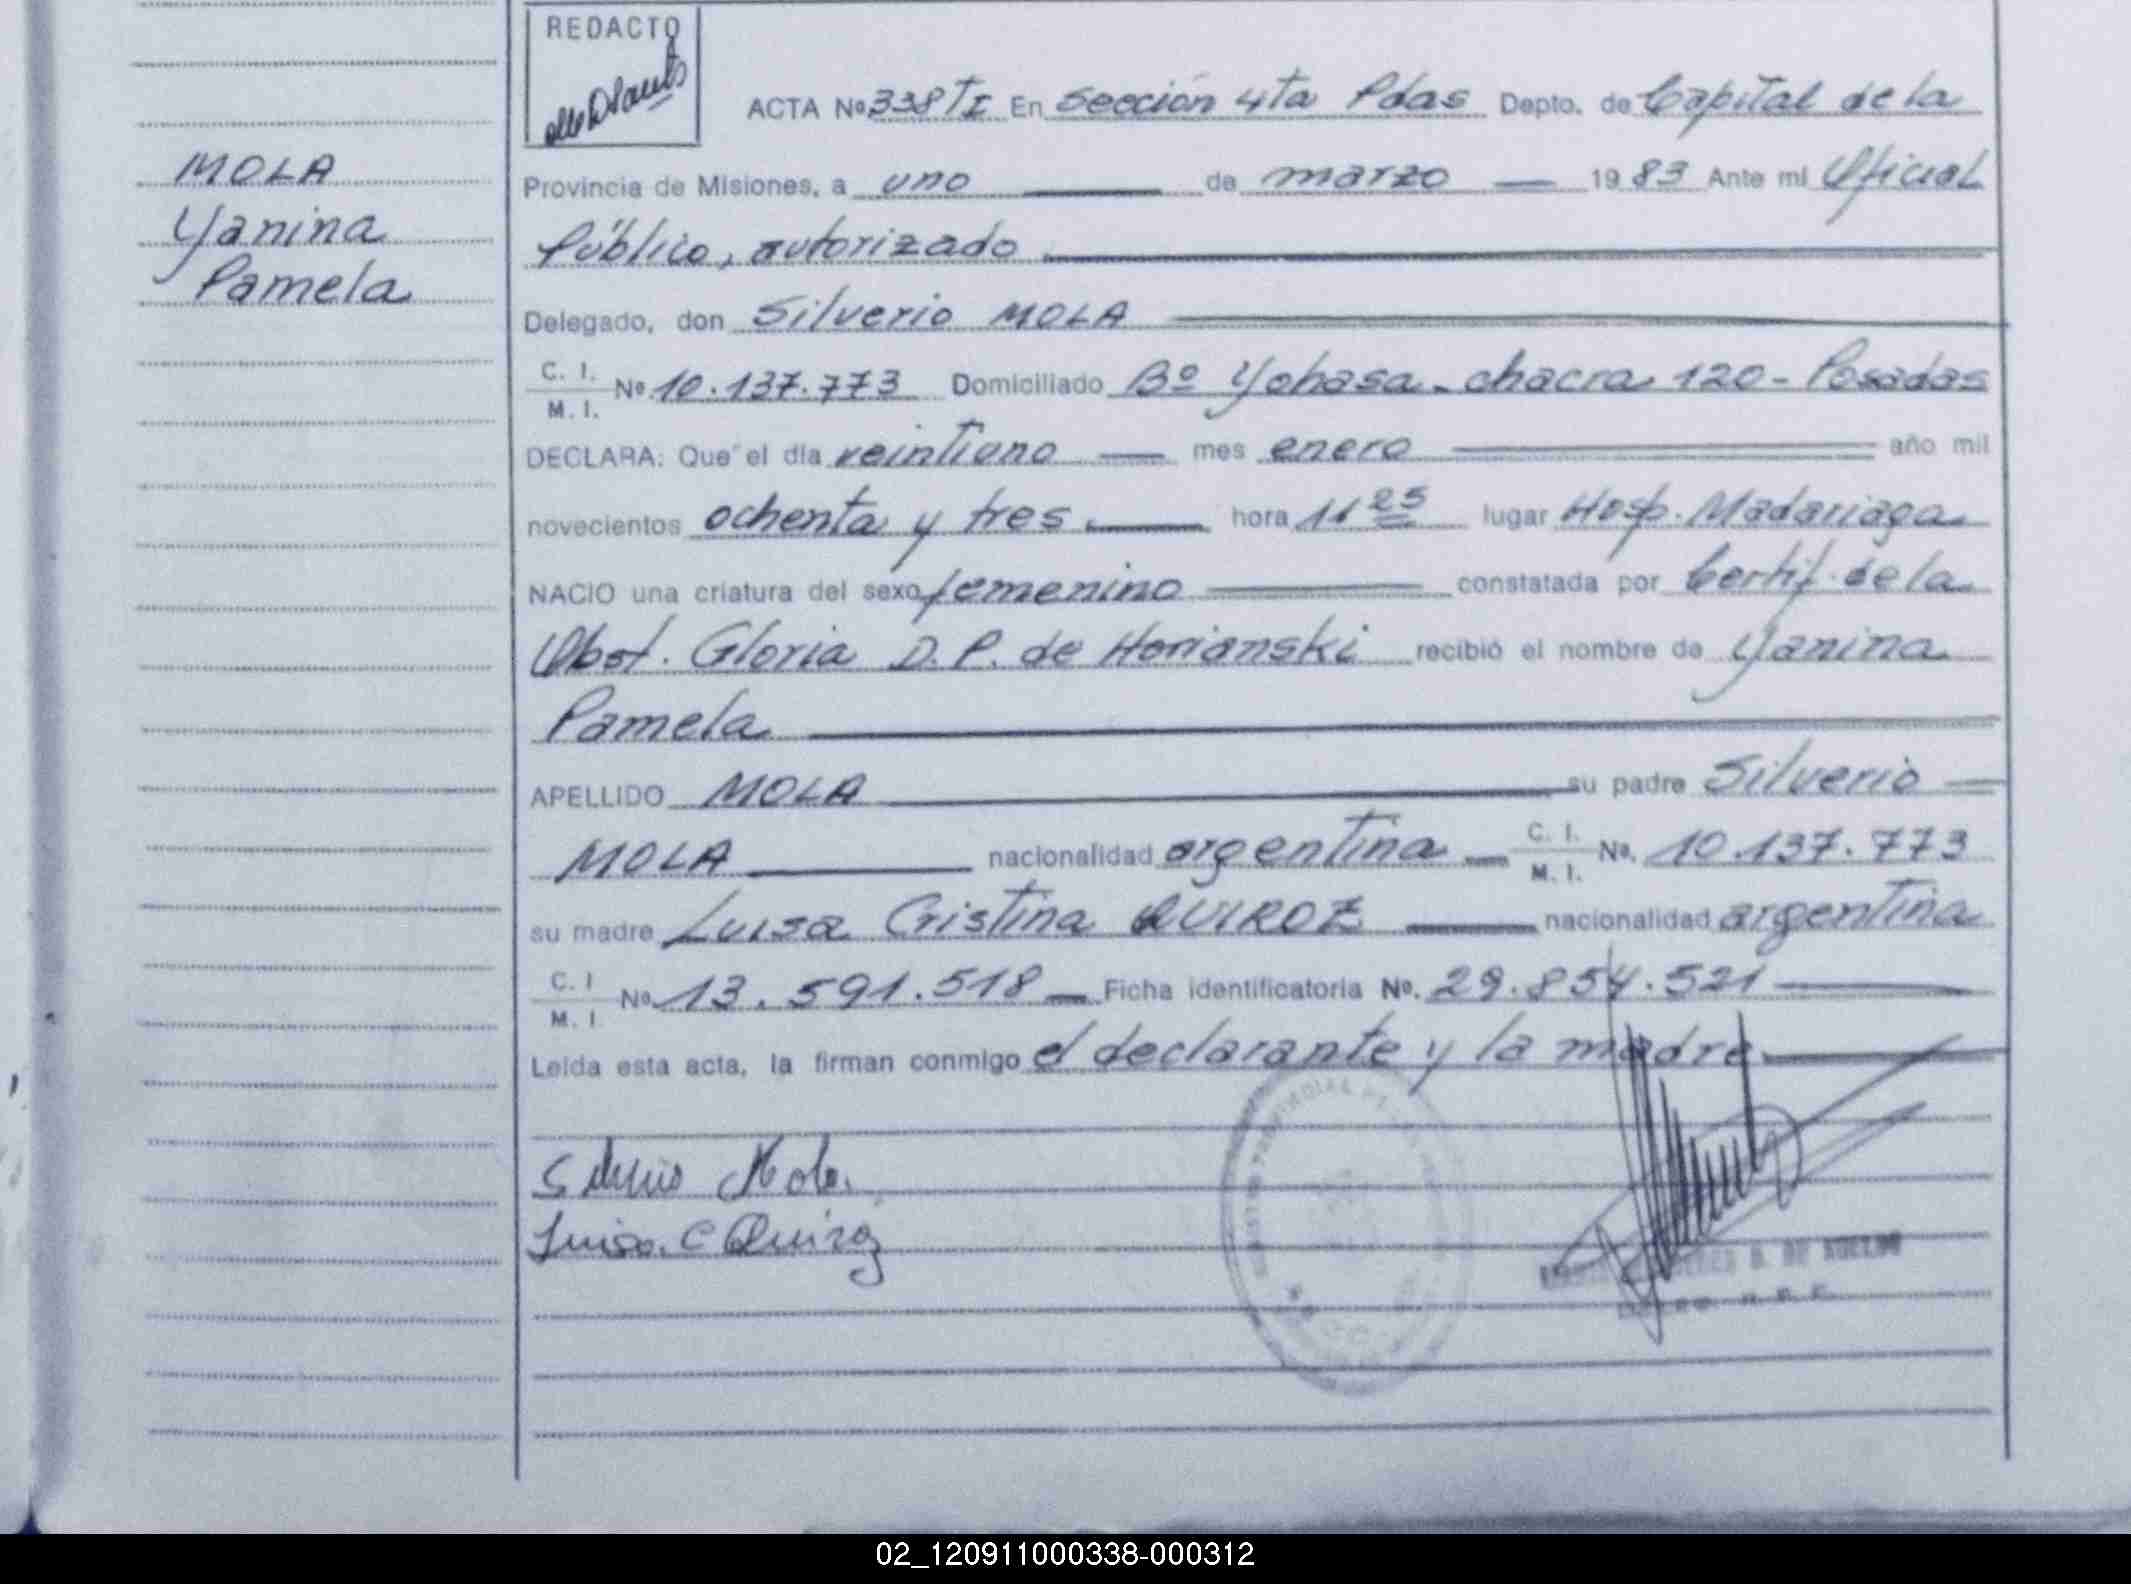 REDACTO
ACTA Nº 338 TI En Sección 4ta Pdas Depto. de Capital de la
MOLA
Yanina
Pamela
Provincia de Misiones, a uno de marzo 1983 Ante mi Oficial
Público, autorizado
Delegado, don Silverio MOLA
C. I.
M. I. Nº 10.137.773 Domiciliado Bº Yohasa - chacra 120 - Posadas
DECLARA: Que el día veintiuno mes enero año mil
novecientos ochenta y tres hora 11 25 lugar Hosp. Madariaga
NACIO una criatura del sexo femenino constatada por Certif. de la
Obst. Gloria D. P. de Horianski recibió el nombre de Yanina
Pamela
APELLIDO MOLA su padre Silverio
MOLA nacionalidad argentina C. I. M. I. Nº. 10.137.773
su madre Luisa Cristina QUIROZ nacionalidad argentina
C. I
M. I. Nº 13.591.518 Ficha identificatoria Nº. 29.854.521
Leída esta acta, la firman conmigo el declarante y la madre
Silverio Mola
Luisa. C Quiroz
02_120911000338-000312